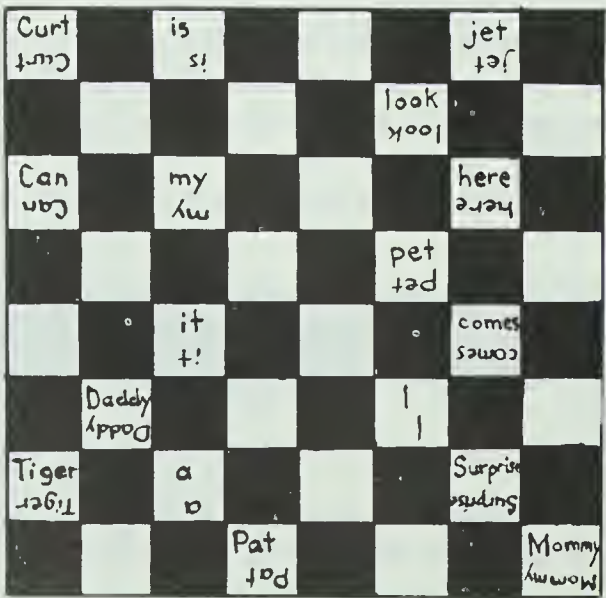 Curt
Curt
is
is
jet
jet
look
look
Can
Can
my
my
here
here
pet
pet
it
it
comes
comes
Daddy
Daddy
I
I
Tiger
Tiger
a
a
Surprise
Surprise
Pat
Pat
Mommy
Mommy